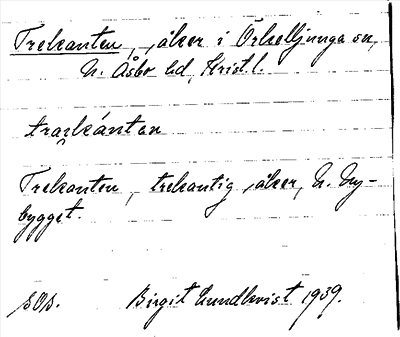 Trekanten, åker i Örkelljunga sn,
N. Åsbo hd, Krist. l.
trækánten
Trekanten, trekantig åker, N. Ny-
bygget.
sOs. Birgit Lundkvist 1939.